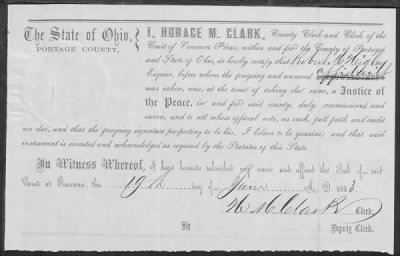 The State of Ohio,
PORTAGE COUNTY.
I, HORACE M. CLARK, County Clerk and Clerk of the
Court of Common Pleas, within and for the County of Portage
and State of Ohio, do hereby certify that Robert M Higley
Esquire, before whom the foregoing and annexed affidavit
was taken, was, at the time of taking the same, a Justice of
the Peace, in and for said county, duly commissioned and
sworn, and to all whose official acts, as such, full faith and credit
are due, and that the foregoing signature purporting to be his, I believe to be genuine; and that said
instrument is executed and acknowledged as required by the Statutes of this State.
In Witness Whereof, I have hereunto subscribed my name and affixed the Seal of said
Court at Ravenna, this 19th day of June A. D. 1863.
H M Clark Clerk,
By Deputy Clerk.